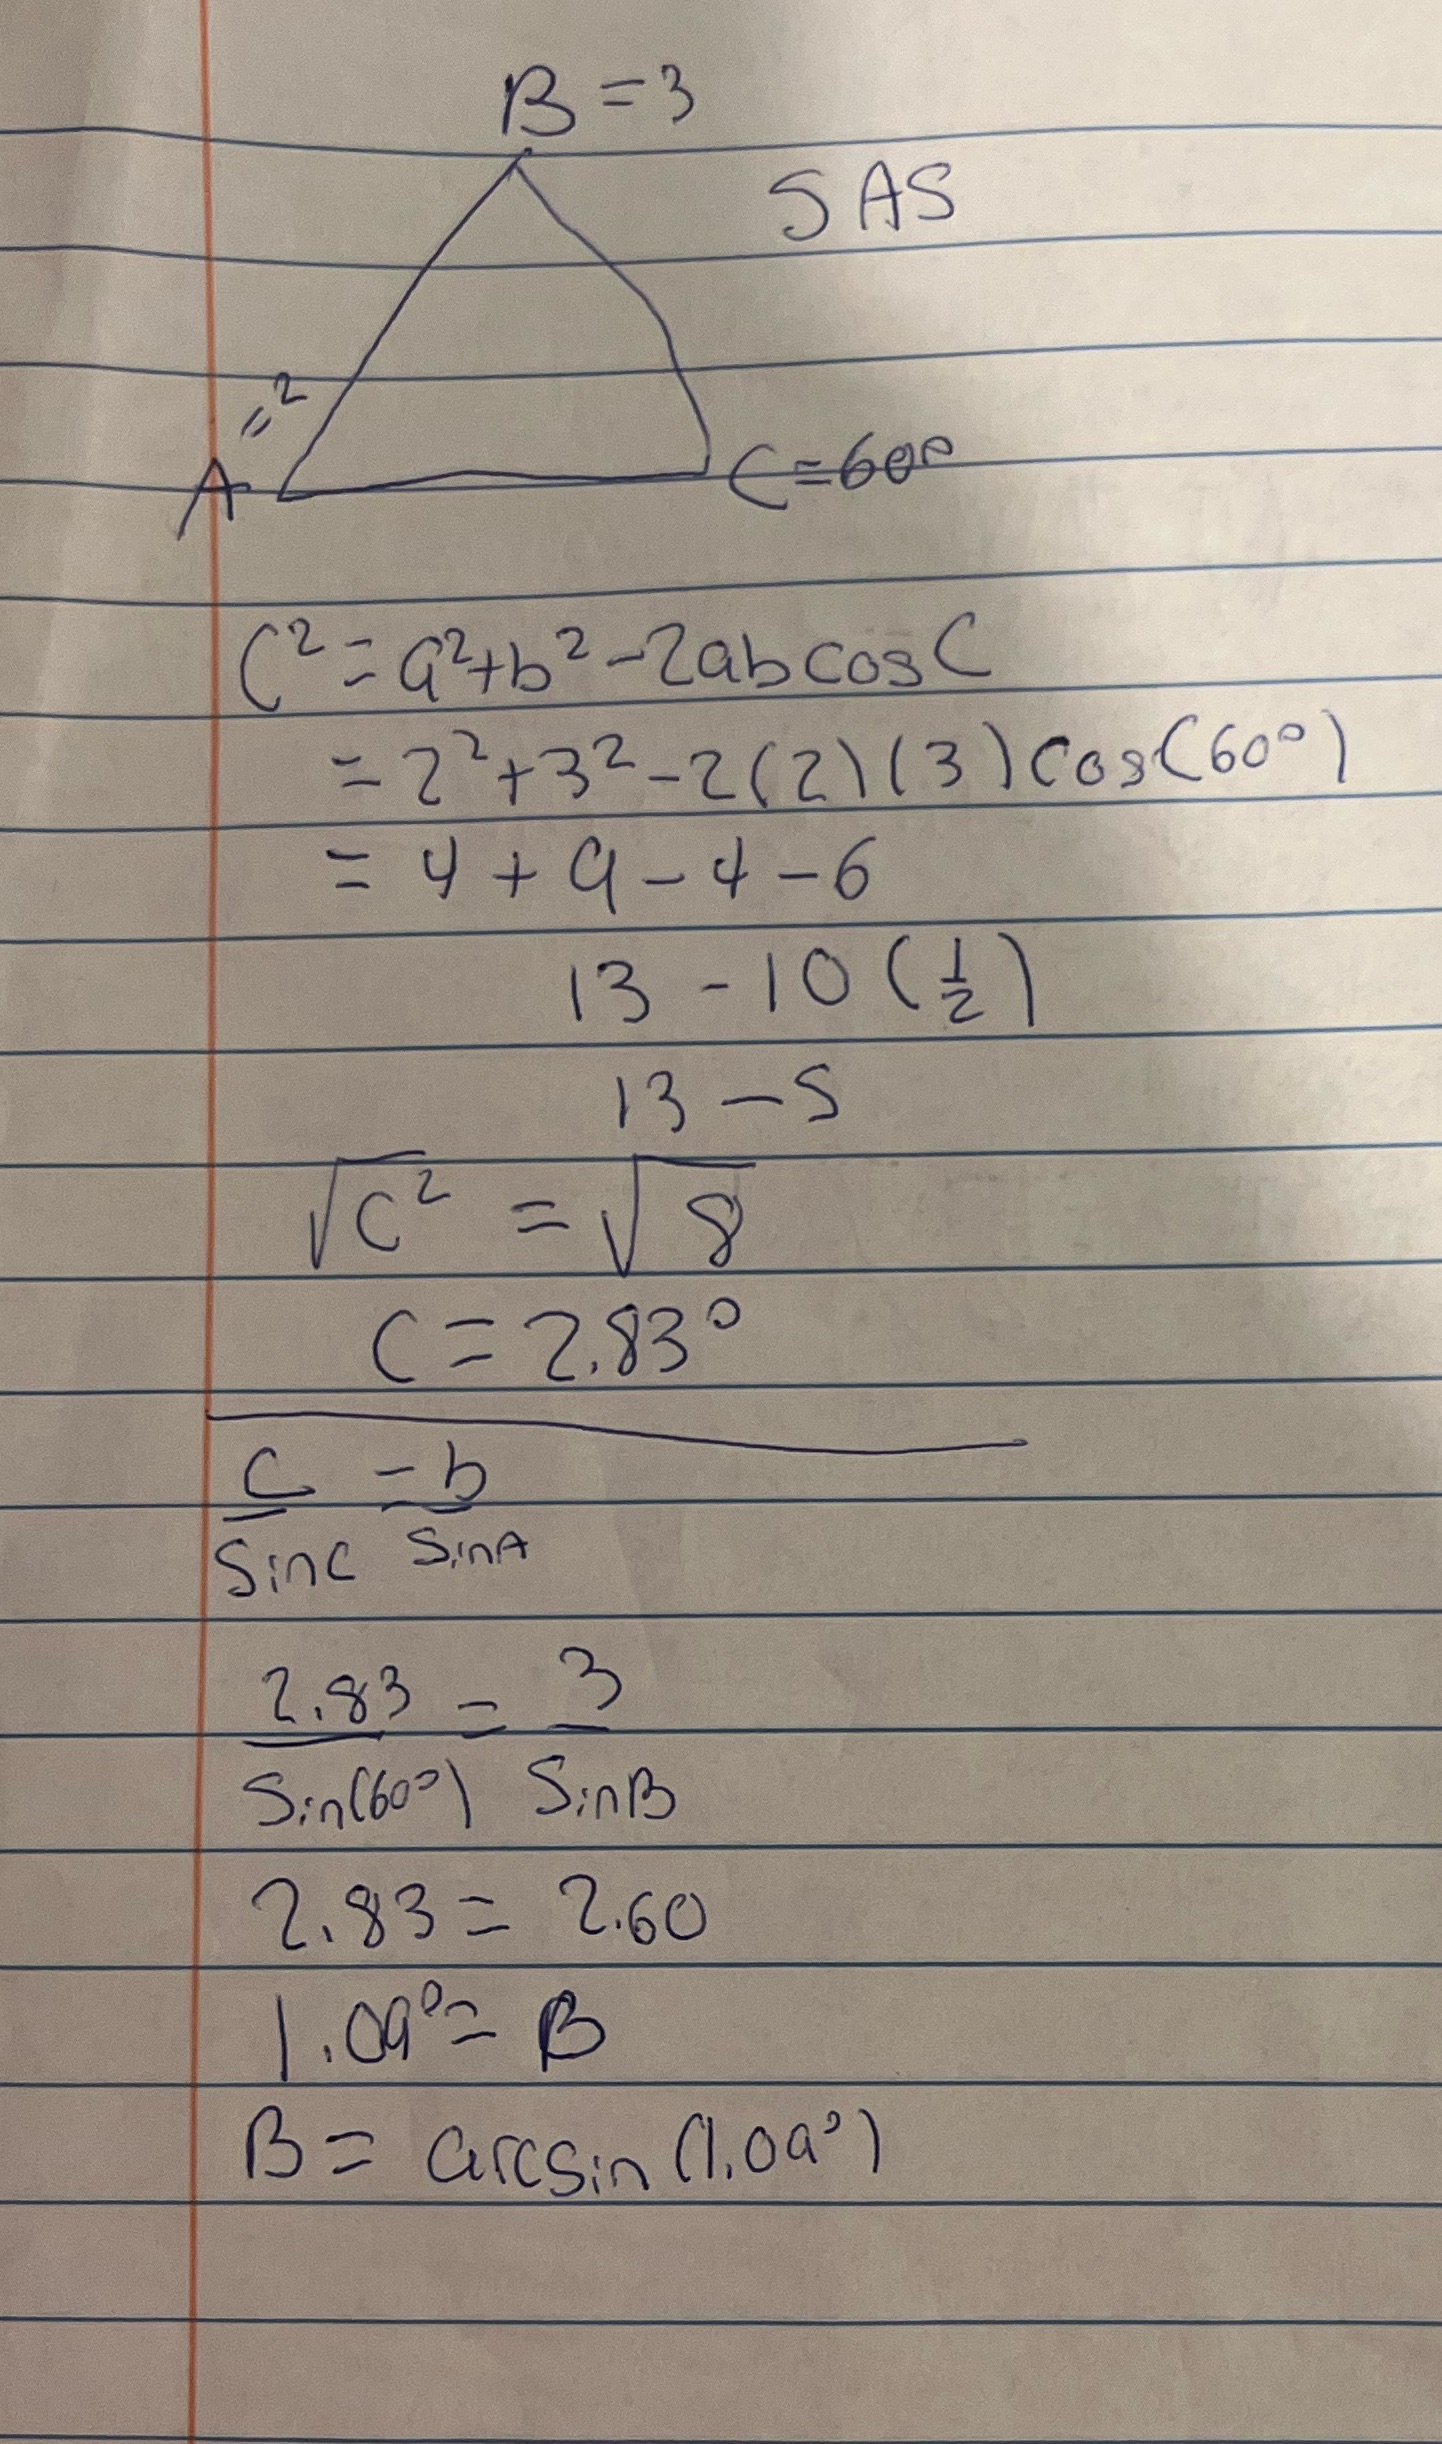 B = 3
SAS
= 2
A
C = 60°
C² = a² + b² - 2ab cos C
= 2² + 3² - 2(2)(3) cos(60°)
= 4 + 9 - 4 - 6
13 - 10 (1/2)
13 - 5
√c² = √8
C = 2.83°
c = b
sinC sinA
2.83 = 3
Sin(60°) SinB
2.83 = 2.60
1.09° = B
B = arcsin (1.09°)